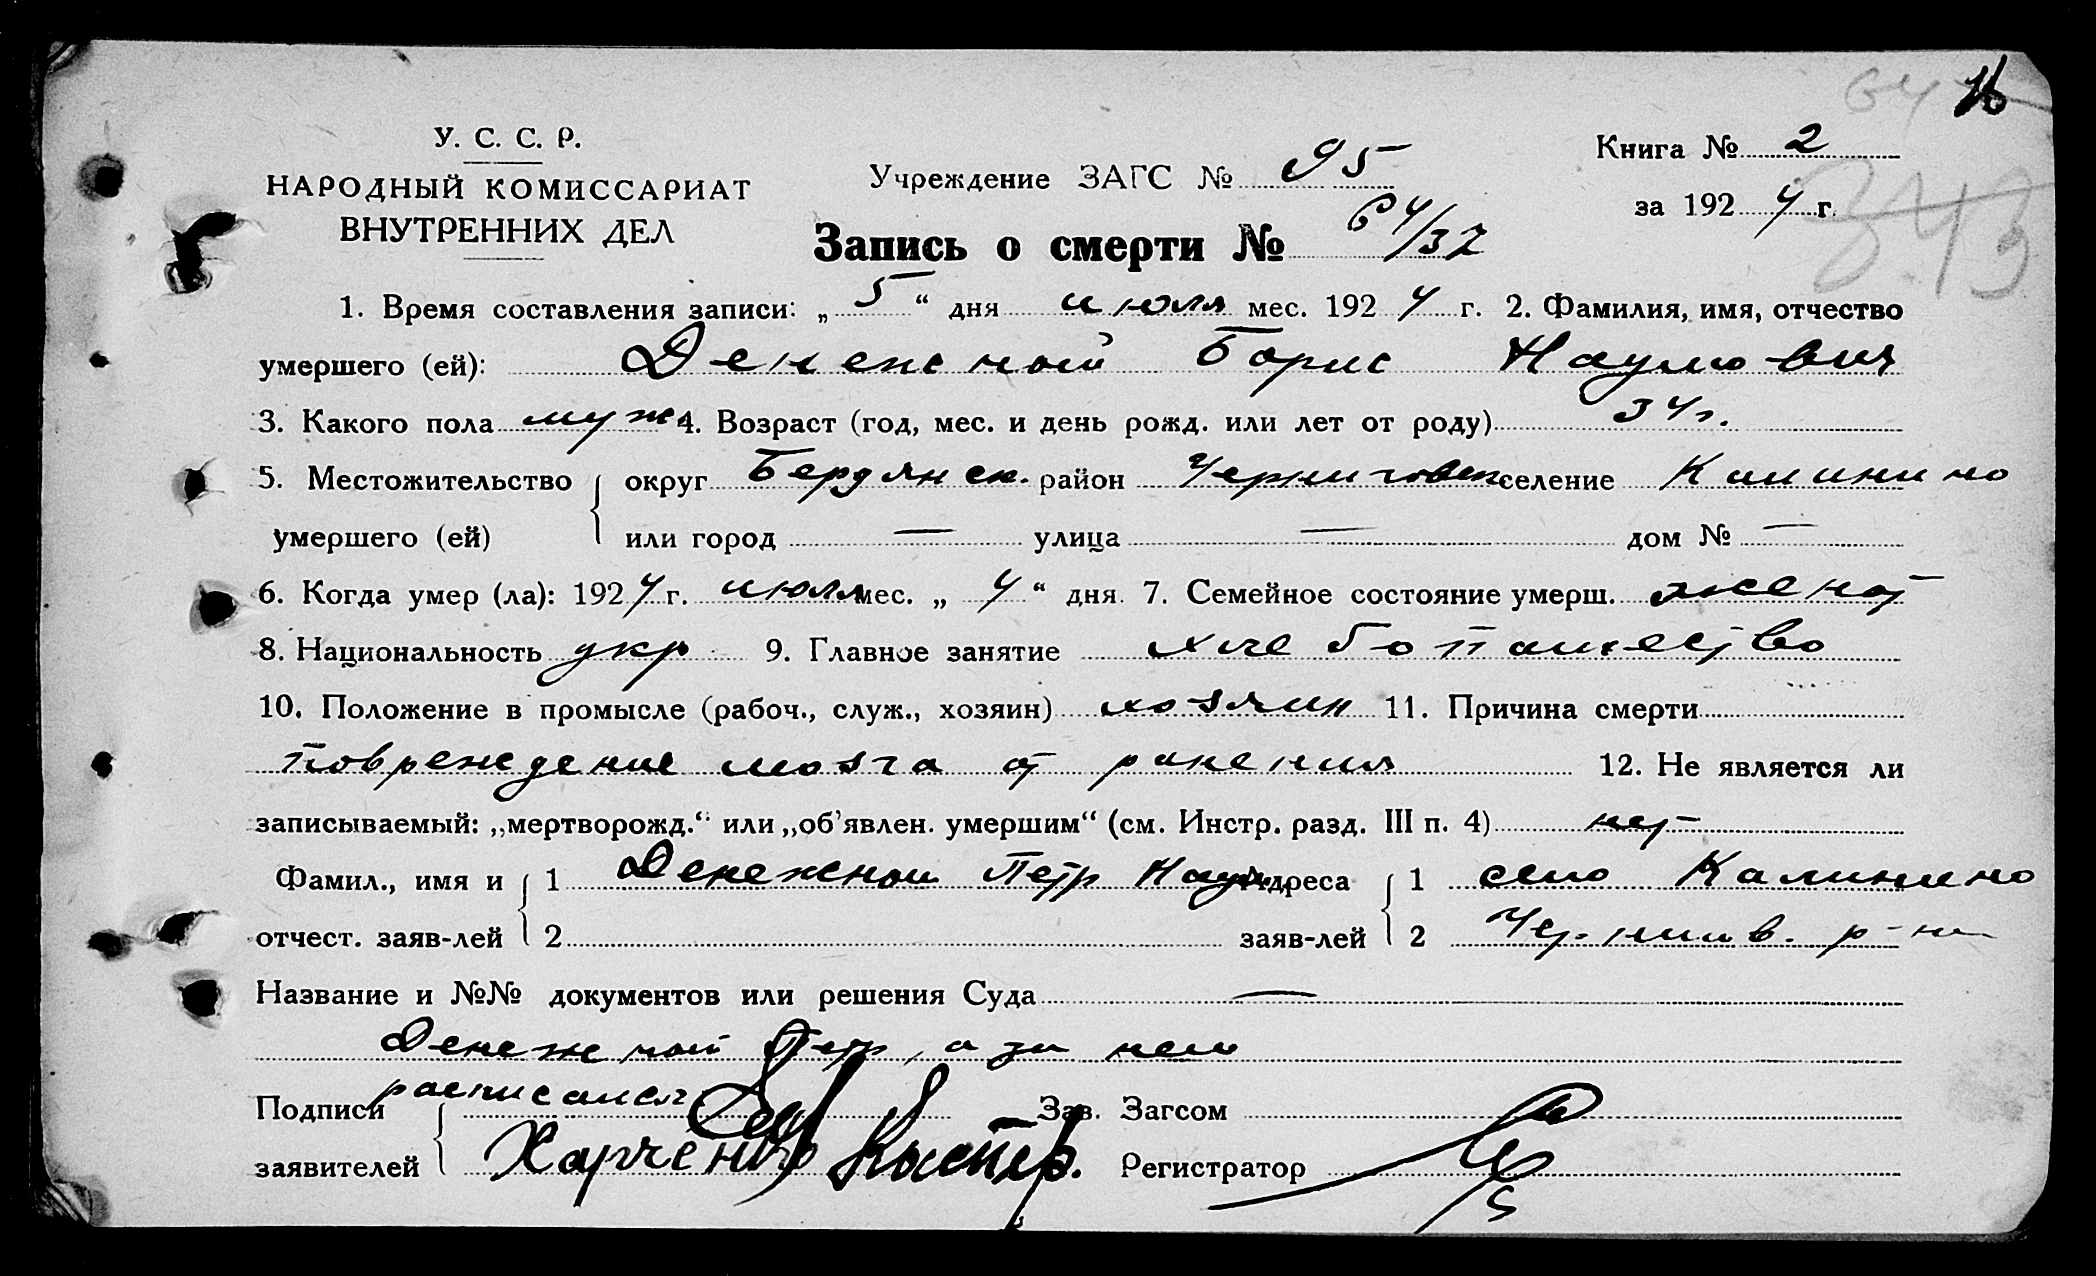 64 16
У. С. С. Р.
НАРОДНЫЙ КОМИССАРИАТ
ВНУТРЕННИХ ДЕЛ
Учреждение ЗАГС № 95
Книга № 2
за 1924 г.
343
Запись о смерти № 64/37
1. Время составления записи: „5“ дня июля мес. 1924 г. 2. Фамилия, имя, отчество
умершего (ей): Денежной Борис Наумович
3. Какого пола муж 4. Возраст (год, мес. и день рожд. или лет от роду) 34 г.
5. Местожительство округ Бердянск. район Черниговск селение Калинино
умершего (ей) или город — улица — дом № —
6. Когда умер (ла): 1924 г. июля мес. „4“ дня. 7. Семейное состояние умерш. женат
8. Национальность укр 9. Главное занятие хлебопашество
10. Положение в промысле (рабоч., служ., хозяин) хозяин 11. Причина смерти
повреждение мозга от ранения 12. Не является ли
записываемый: „мертворожд.“ или „об’явлен. умершим“ (см. Инстр. разд. III п. 4) нет
Фамил., имя и 1 Денежной Петр Наум. Адреса 1 село Калинино
отчест. заяв-лей 2 заяв-лей 2 Чернигов. р-на
Название и №№ документов или решения Суда —
Денежной Петр, а за него
Подписи расписался Зав. Загсом
заявителей Харченко Регистратор